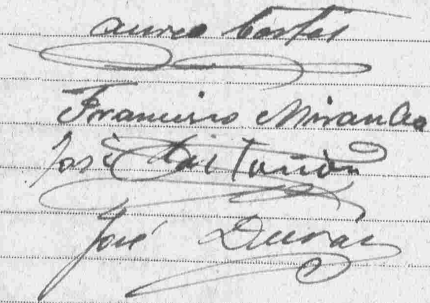 Aureo Costas
Francisco Miranda
José Castañón
José Durán